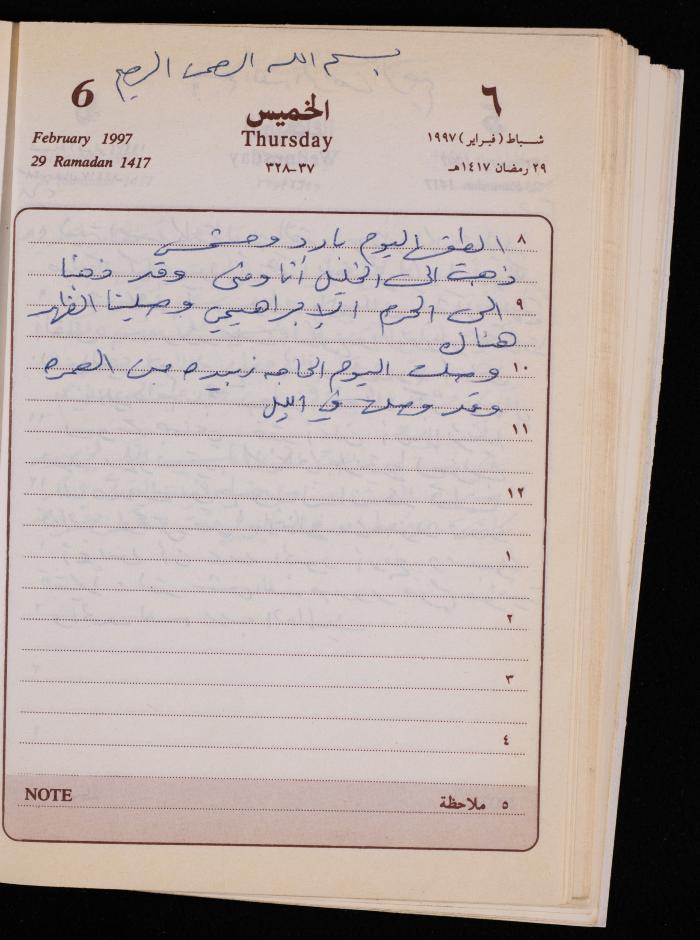 بسم الله الرحمن الرحيم
6 ٦
الخميس
February 1997 Thursday شباط (فبراير) ١٩٩٧
29 Ramadan 1417 ٣٧-٣٢٨ ٢٩ رمضان ١٤١٧هـ
٨ الطقس اليوم بارد ومشمس
ذهبت الى الخليل أنا ومنى وقد ذهبنا
٩ الى الحرم الإبراهيمي وصلينا الظهر
هناك
١٠ وصلت اليوم الحاجه زبيده من العمره
وقد وصلت في الليل
١١
١٢
١
٢
٣
٤
NOTE ٥ ملاحظة